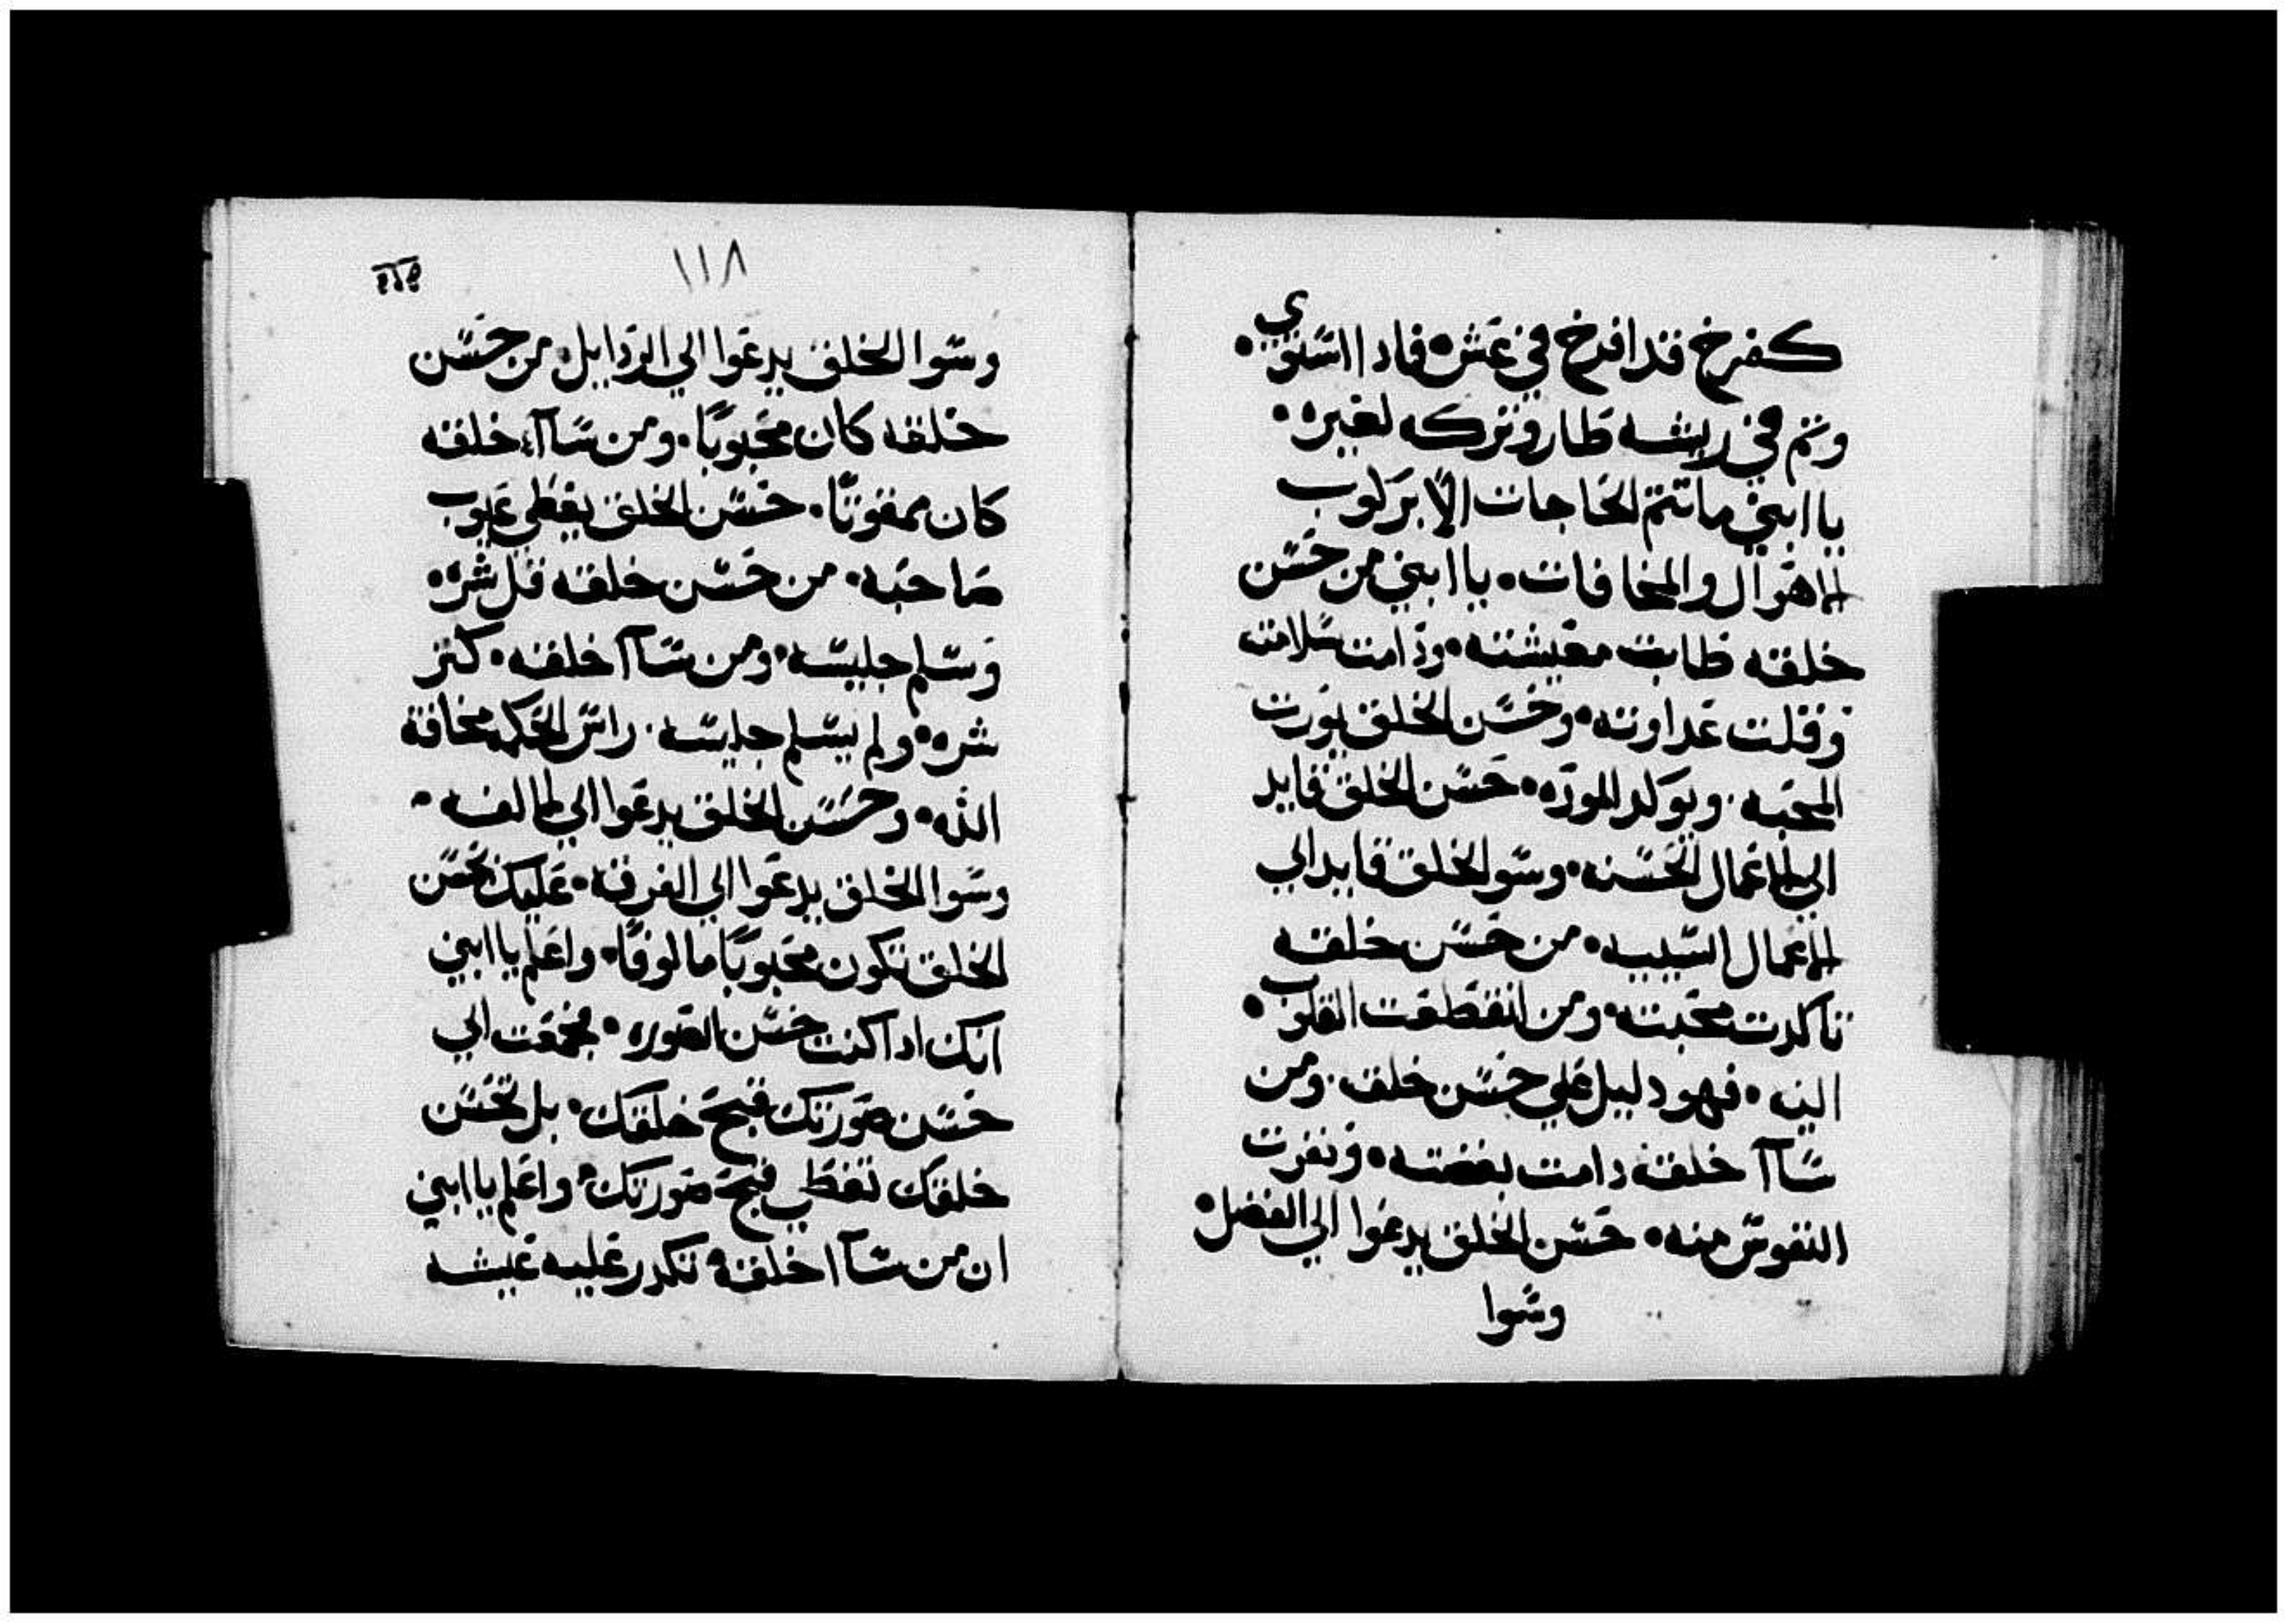 كفرخ قد افرخ في عشه فاداا ستوي
وتم في ريشه طار وتركه لغيره
يا ابني ما تتم الحاجات الا بركوب
الاهوال والمخافات يا ابني من حسن
خلقه طابت معيشته ودامت سلامته
وقلت عداوته وحسن الخلق يورت
المحبه ويوكد الموده حسن الخلق قايد
الي الاعمال الحسنه وسو الخلق قايد الي
الاعمال السييه من حسن خلقه
تاكدت محبته ومن انقطعت القلوب
اليه فهو دليل علي حسن خلقه ومن
ساآ خلقه دامت بغضته ونفرت
النفوس منه حسن الخلق يدعوا الي الفضل
وسوا
١١٨
وسوا الخلق يدعوا الي الردايل من حسن
خلقه كان محبوبًا ومن ساآء خلقه
كان ممقوتًا حسن الخلق يغطي عيوب
صاحبه من حسن خلقه قل شره
وسلم جليسه ومن ساآ خلقه كتر
شره ولم يسلم جليسه راس الحكمه مخافة
الله وحسن الخلق يدعوا الي الالفه
وسوا الخلق يدعوا الي الفرقه عليك بحسن
الخلق تكون محبوبًا مالوفًا واعلم يا ابني
انك ادا كنت حسن الصوره جمعت الي
حسن صورتك قبح خلقك بل تحسن
خلقك تغطي قبح صورتك واعلم يا ابني
ان من ساآ ا خلقه تكدر عليه عيشه